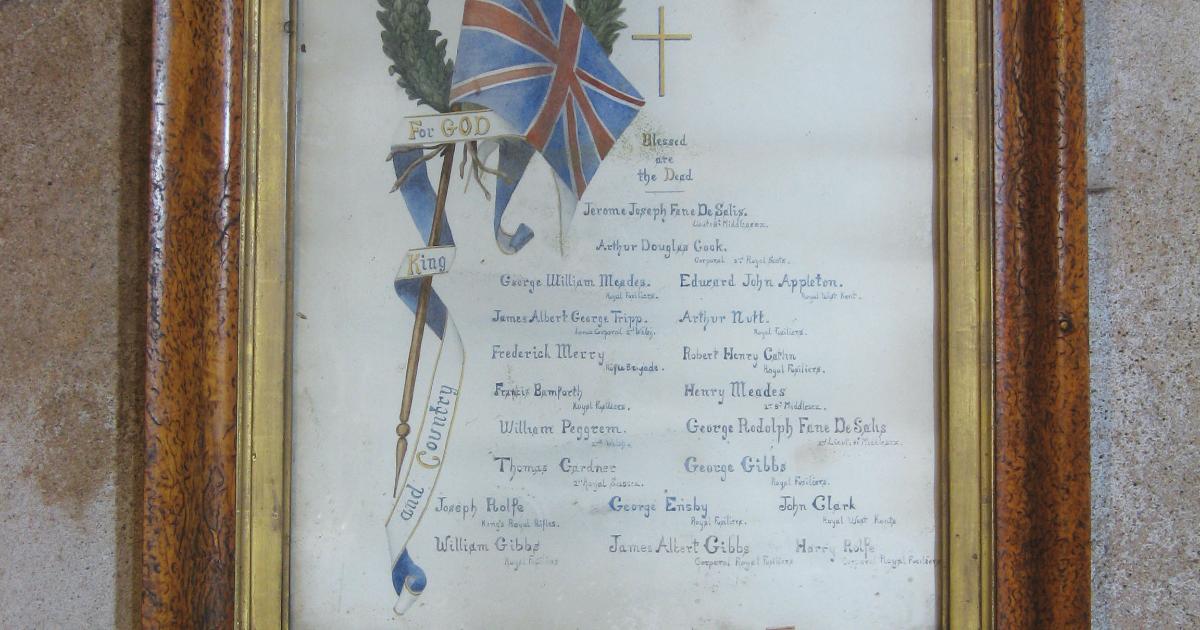 For GOD
King
and Country
Blessed
are
the Dead
Jerome Joseph Fane De Salis.
Lieut 8th Middlesex.
Arthur Douglas Cook.
Corporal 2nd Royal Scots.
George William Meades. Edward John Appleton.
Royal Fusiliers. Royal West Kent.
James Albert George Tripp. Arthur Nutt.
Lance Corporal Royal Fusiliers.
Frederick Merry Robert Henry Catlin
Rifle Brigade. Royal Fusiliers.
Francis Bamforth Henry Meades
Royal Fusiliers. Middlesex.
William Peggrem. George Rodolph Fane De Salis
2nd Lieut. Middlesex.
Thomas Gardner George Gibbs
2nd Royal Sussex. Royal Fusiliers.
Joseph Rolfe George Ensby John Clark
King's Royal Rifles. Royal Fusiliers. Royal West Kents
William Gibbs James Albert Gibbs Harry Rolfe
Royal Fusiliers Corporal Royal Fusiliers Corporal Royal Fusiliers